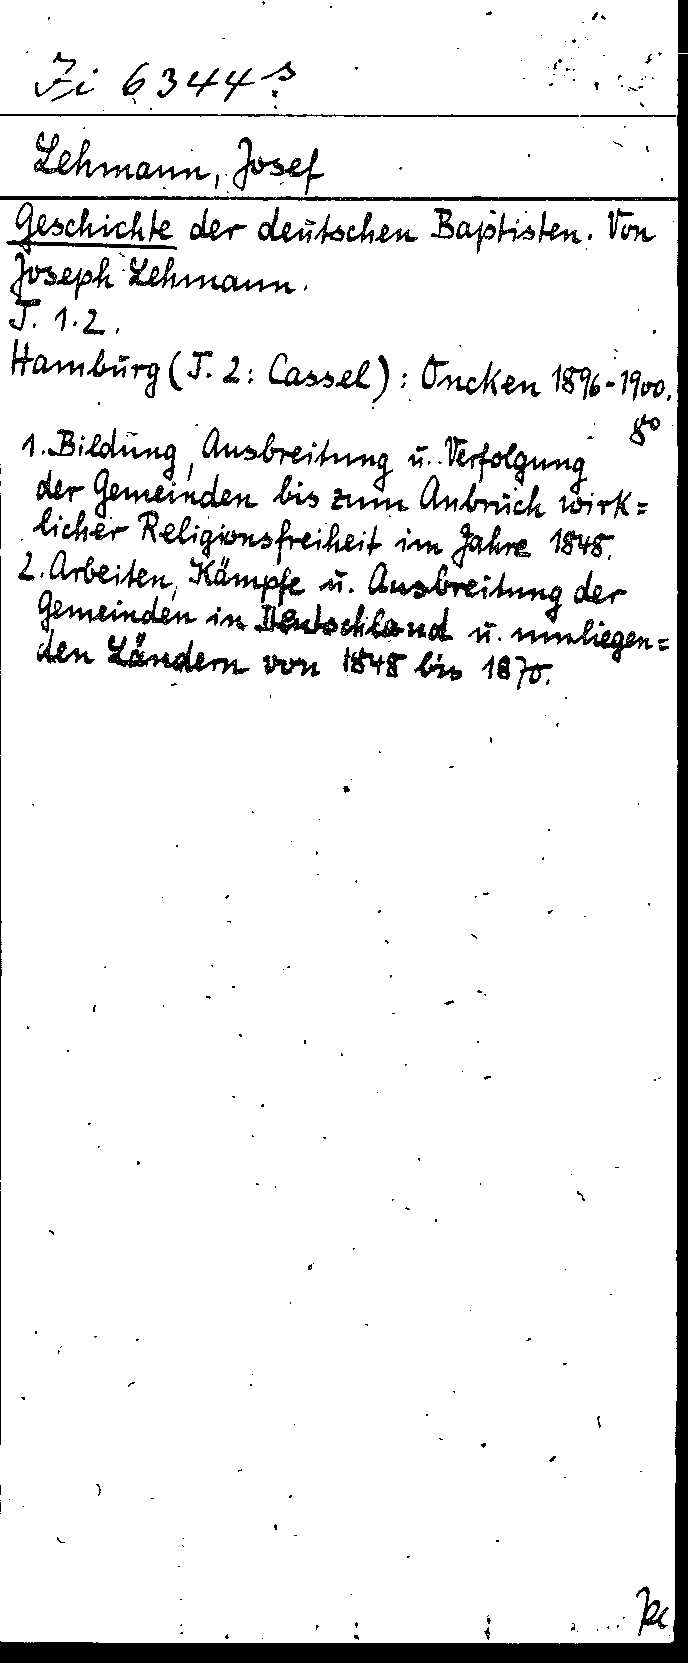 Zi 6344 s
Lehmann, Josef
Geschichte der deutschen Baptisten. Von
Joseph Lehmann.
T. 1.2.
Hamburg (T. 2: Cassel): Oncken 1896-1900.
8°
1. Bildung, Ausbreitung u. Verfolgung
der Gemeinden bis zum Anbruch wirk=
licher Religionsfreiheit im Jahre 1848.
2. Arbeiten, Kämpfe u. Ausbreitung der
Gemeinden in Deutschland u. umliegen=
den Ländern von 1848 bis 1870.